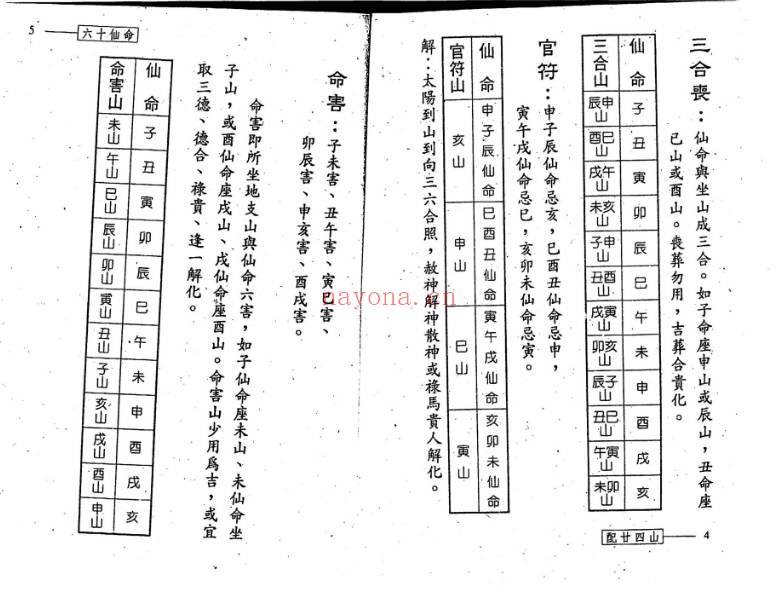 三合喪：仙命與坐山成三合。如子命座申山或辰山，丑命座
巳山或酉山。喪葬勿用，吉葬合貴化。
仙命 子 丑 寅 卯 辰 巳 午 未 申 酉 戌 亥
三合山 辰申山 酉巳山 戌午山 未亥山 子申山 丑酉山 戌寅山 卯亥山 辰子山 丑巳山 午寅山 未卯山
官符：申子辰仙命忌亥，巳酉丑仙命忌申，
寅午戌仙命忌巳，亥卯未仙命忌寅。
仙命 申子辰仙命 巳酉丑仙命 寅午戌仙命 亥卯未仙命
官符山 亥山 申山 巳山 寅山
解：太陽到山到向三六合照，赦神解神散神或祿馬貴人解化。
配廿四山
4
命害：子未害、丑午害、寅巳害、
卯辰害、申亥害、酉戌害。
命害即所坐地支山與仙命六害，如子仙命座未山、未仙命坐
子山，或酉仙命座戌山、戌仙命座酉山。命害山少用爲吉，或宜
取三德、德合、祿貴、逢一解化。
仙命 子 丑 寅 卯 辰 巳 午 未 申 酉 戌 亥
命害山 未山 午山 巳山 辰山 卯山 寅山 丑山 子山 亥山 戌山 酉山 申山
六十仙命
5
nayona.cn